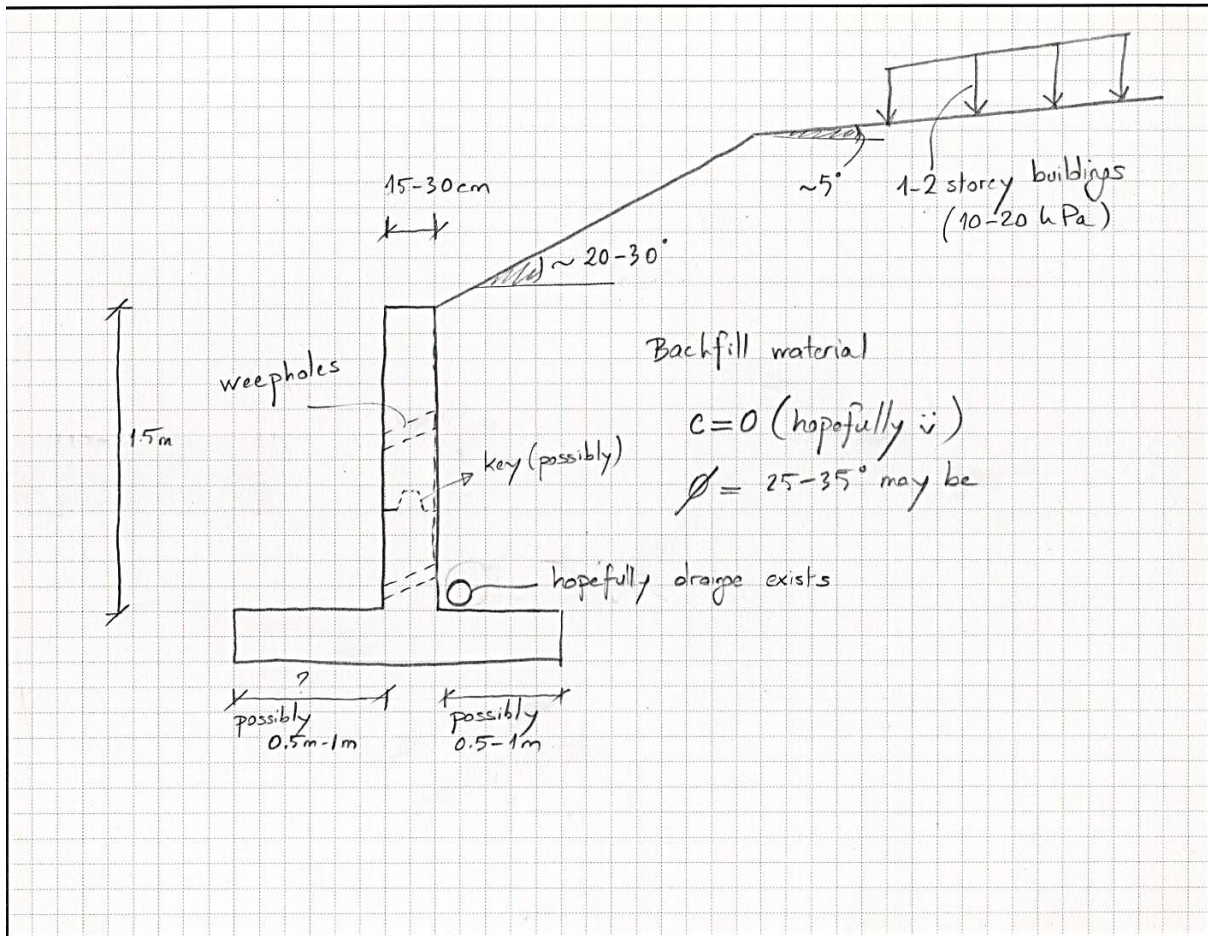 15-30cm
~ 20-30°
~5°
1-2 storey buildings
(10-20 kPa)
weepholes
1.5m
key (possibly)
Backfill material
c=0 (hopefully ü)
ø = 25-35° may be
hopefully draige exists
?
possibly
0.5m-1m
possibly
0.5-1m